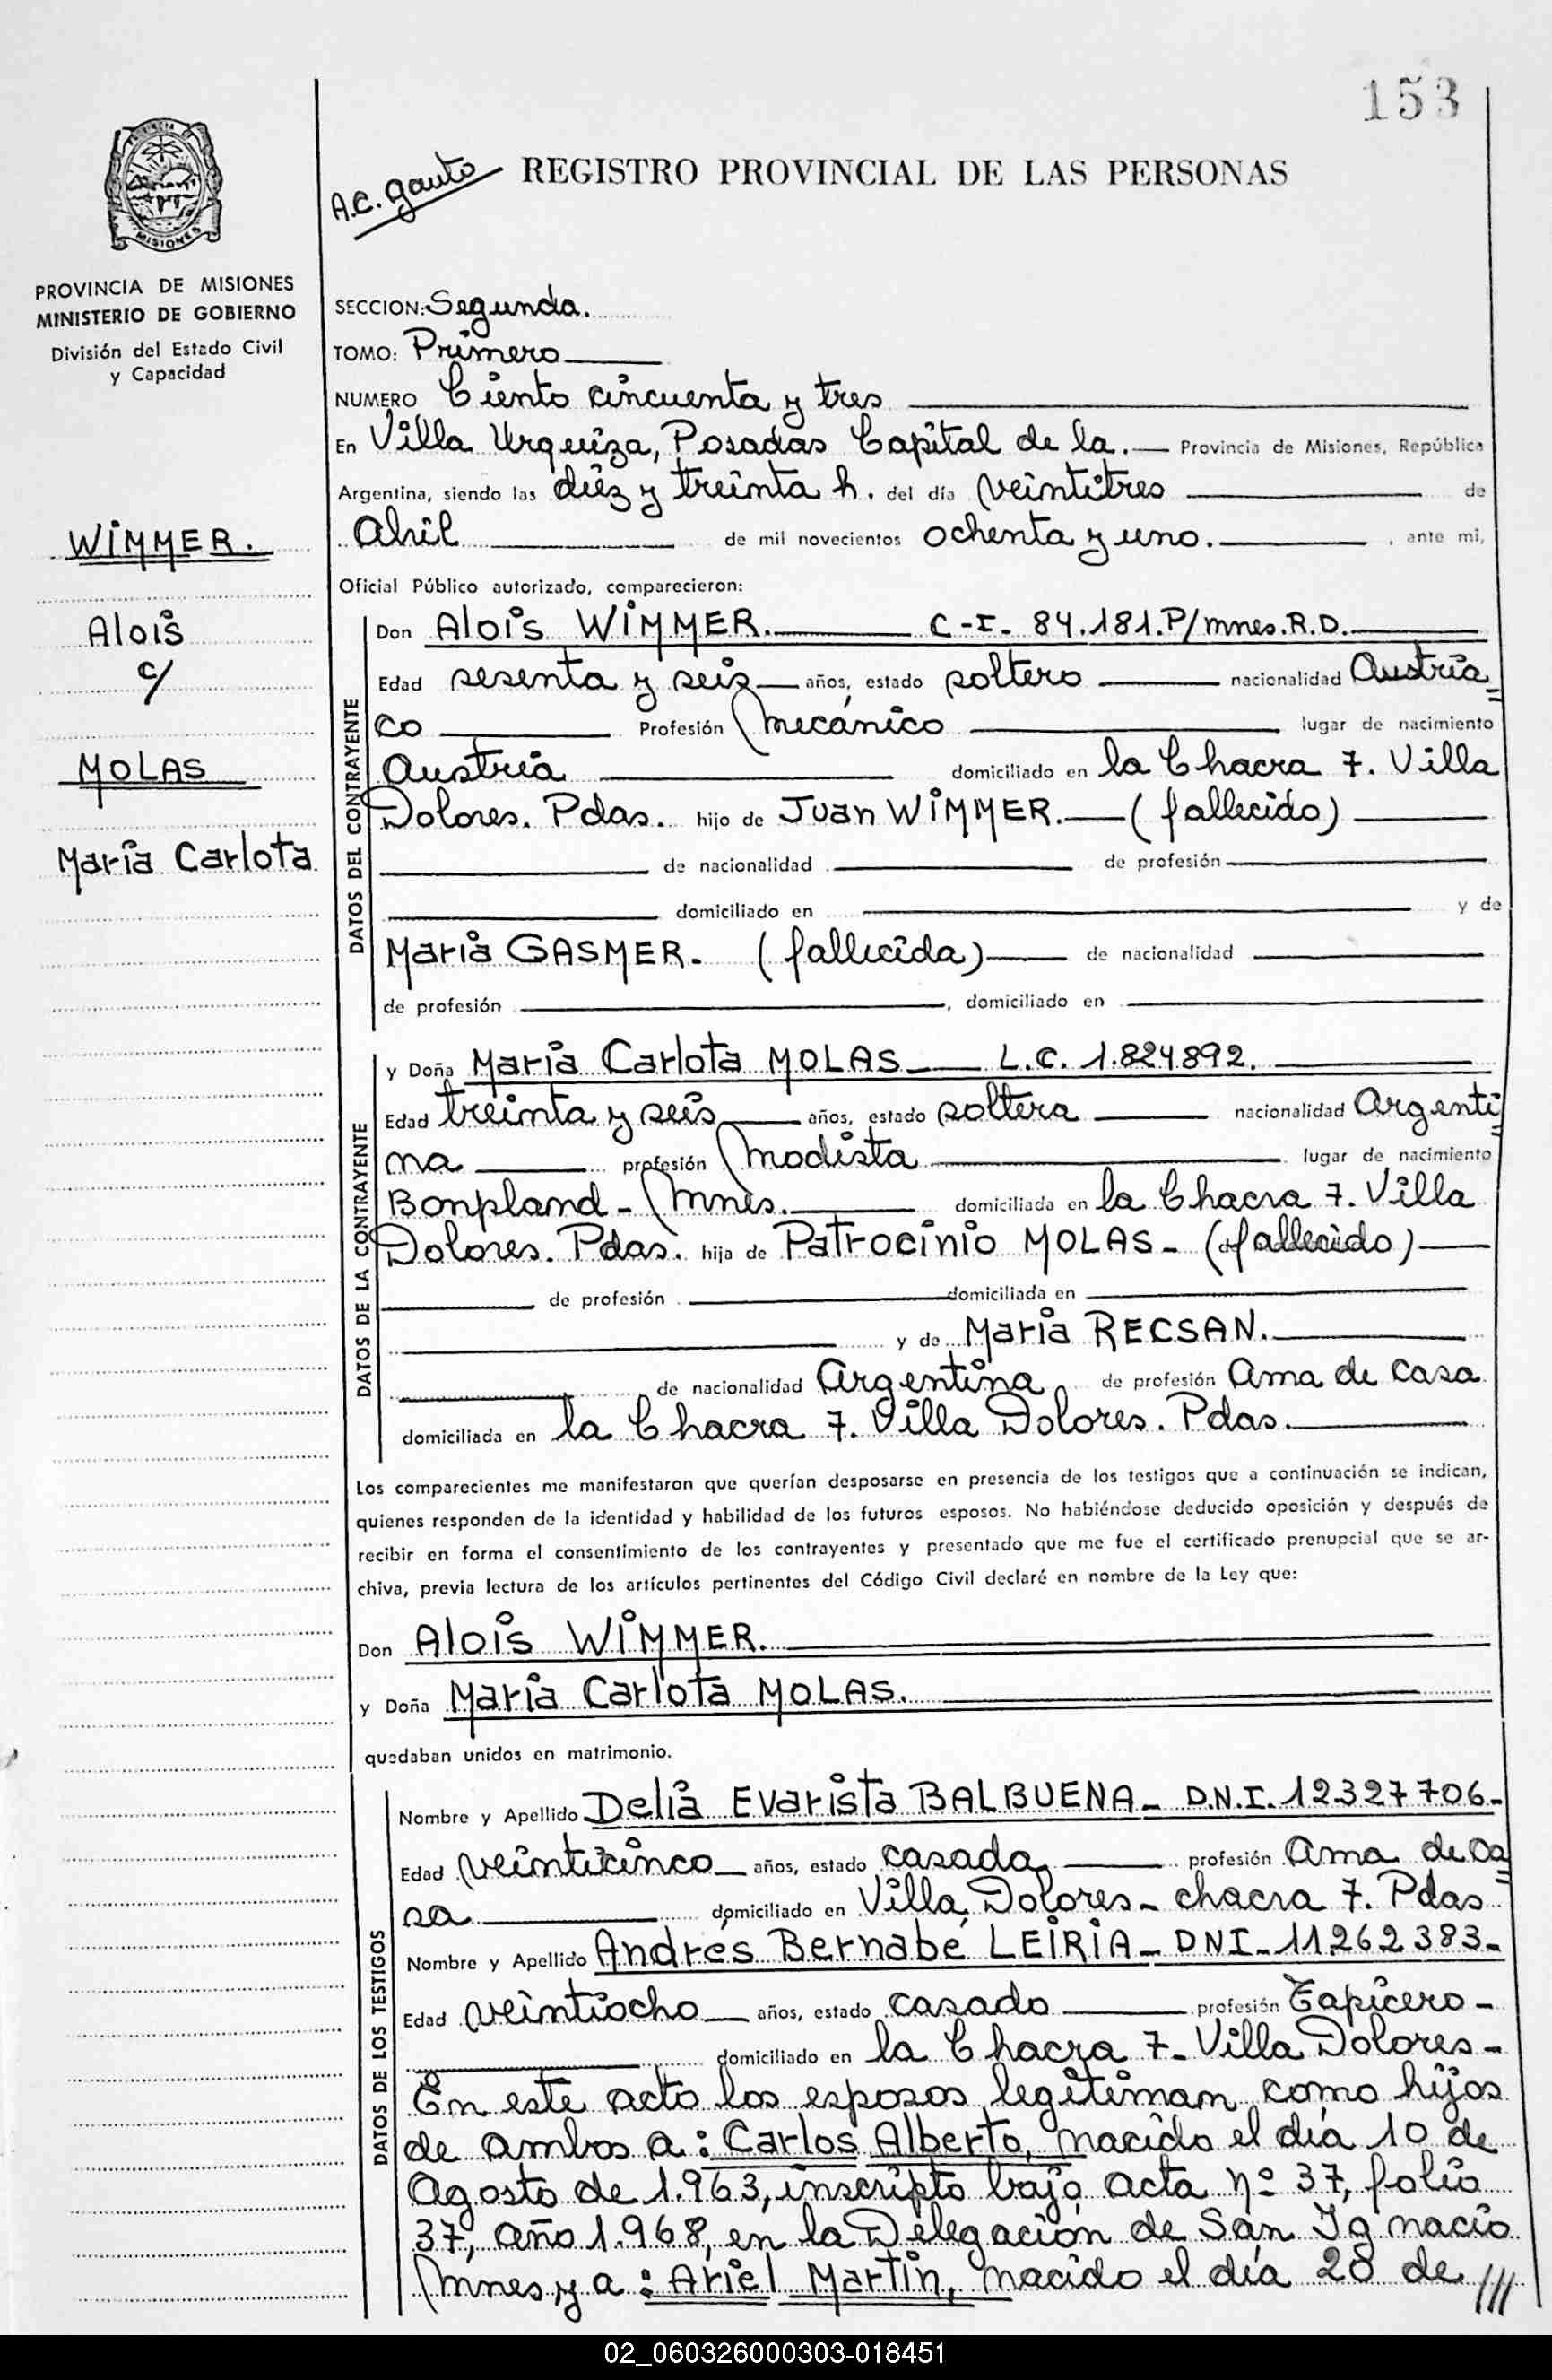 153
A.C. Gauto
REGISTRO PROVINCIAL DE LAS PERSONAS
PROVINCIA DE MISIONES
MINISTERIO DE GOBIERNO
División del Estado Civil
y Capacidad
WIMMER.
Alois
c/
MOLAS
María Carlota
SECCION: Segunda.
TOMO: Primero
NUMERO Ciento cincuenta y tres
En Villa Urquiza, Posadas Capital de la. Provincia de Misiones, República
Argentina, siendo las diez y treinta h. del día veintitres de
Abril de mil novecientos ochenta y uno. , ante mi,
Oficial Público autorizado, comparecieron:
DATOS DEL CONTRAYENTE
Don Alois WIMMER. C-I- 84.181.P/mnes.R.D.
Edad sesenta y seis años, estado soltero nacionalidad Austría=
co Profesión Mecánico lugar de nacimiento
Austria domiciliado en la Chacra 7. Villa
Dolores. Pdas. hijo de Juan WIMMER. (fallecido)
de nacionalidad de profesión
domiciliado en y de
María GASMER. (fallecida) de nacionalidad
de profesión , domiciliado en
DATOS DE LA CONTRAYENTE
y Doña María Carlota MOLAS L.C. 1.824.892.
Edad treinta y seis años, estado soltera nacionalidad Argenti=
na profesión Modista lugar de nacimiento
Bonpland - Mnes. domiciliada en la Chacra 7. Villa
Dolores. Pdas. hija de Patrocinio MOLAS - (fallecido)
de profesión domiciliada en
y de María RECSAN.
de nacionalidad Argentina de profesión Ama de casa
domiciliada en la Chacra 7. Villa Dolores. Pdas.
Los comparecientes me manifestaron que querían desposarse en presencia de los testigos que a continuación se indican,
quienes responden de la identidad y habilidad de los futuros esposos. No habiéndose deducido oposición y después de
recibir en forma el consentimiento de los contrayentes y presentado que me fue el certificado prenupcial que se ar-
chiva, previa lectura de los artículos pertinentes del Código Civil declaré en nombre de la Ley que:
Don Alois WIMMER.
y Doña María Carlota MOLAS.
quedaban unidos en matrimonio.
DATOS DE LOS TESTIGOS
Nombre y Apellido Delia Evarista BALBUENA - D.N.I. 12327706-
Edad veinticinco años, estado casada profesión Ama de ca=
sa domiciliado en Villa Dolores - chacra 7. Pdas
Nombre y Apellido Andrés Bernabé LEIRIA - DNI - 11.262.383-
Edad veintiocho años, estado casado profesión Tapicero -
domiciliado en la Chacra 7- Villa Dolores-
En este acto los esposos legitiman como hijos
de ambos a: Carlos Alberto, nacido el día 10 de
Agosto de 1.963, inscripto bajo acta nº 37, folio
37, año 1.968, en la Delegación de San Ignacio
Mnes y a: Ariel Martín, nacido el día 28 de ///
02_060326000303-018451